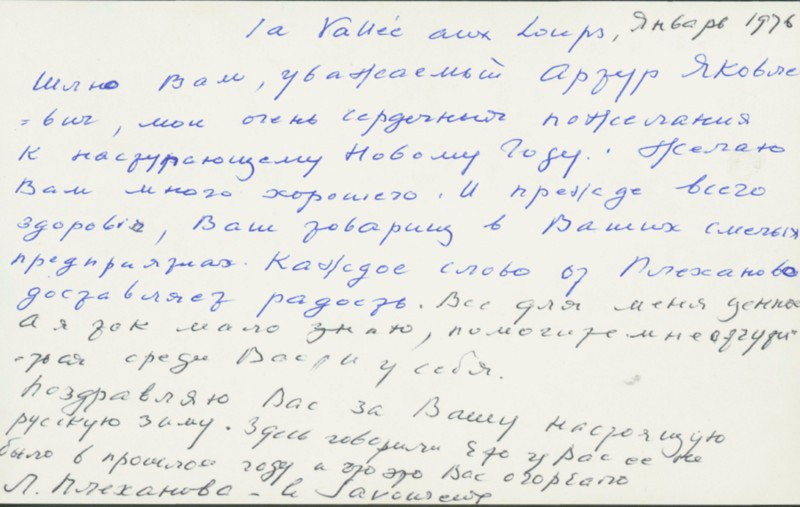 la Vallée aux Loups, Январь 1976
Шлю Вам, уважаемый Артур Яковле
=вич, мои очень сердечный пожелания
к наступающему Новому Году. Желаю
Вам много хорошего. И прежде всего
здоровья, Ваш товарищ в Ваших смелых
предприятиях. Каждое слово от Плеханова
доставляет радость. Все для меня ценно
а я так мало знаю, помогите мне
-ться среди Вас, и у себя.
Поздравляю Вас за Вашу настоящую
русскую зиму. Здесь говорили что у Вас ее не
было в прошлом году и что это Вас огорчало
Л. Плеханова - le Savoureux